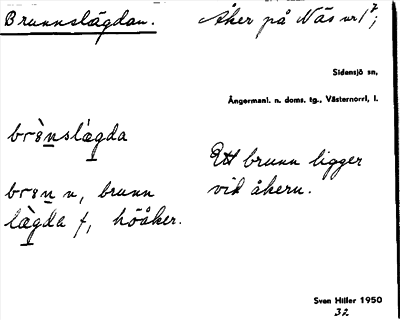 Brunnslägdan.
Åker på Näs nr 1²;
Sidensjö sn,
Ångermanl. n. doms. tg., Västernorrl. l.
brɞ̀nslægda
Ett brunn ligger
vid åkern.
brɞn n, brunn
lægda f, höåker.
Sven Hiller 1950
32